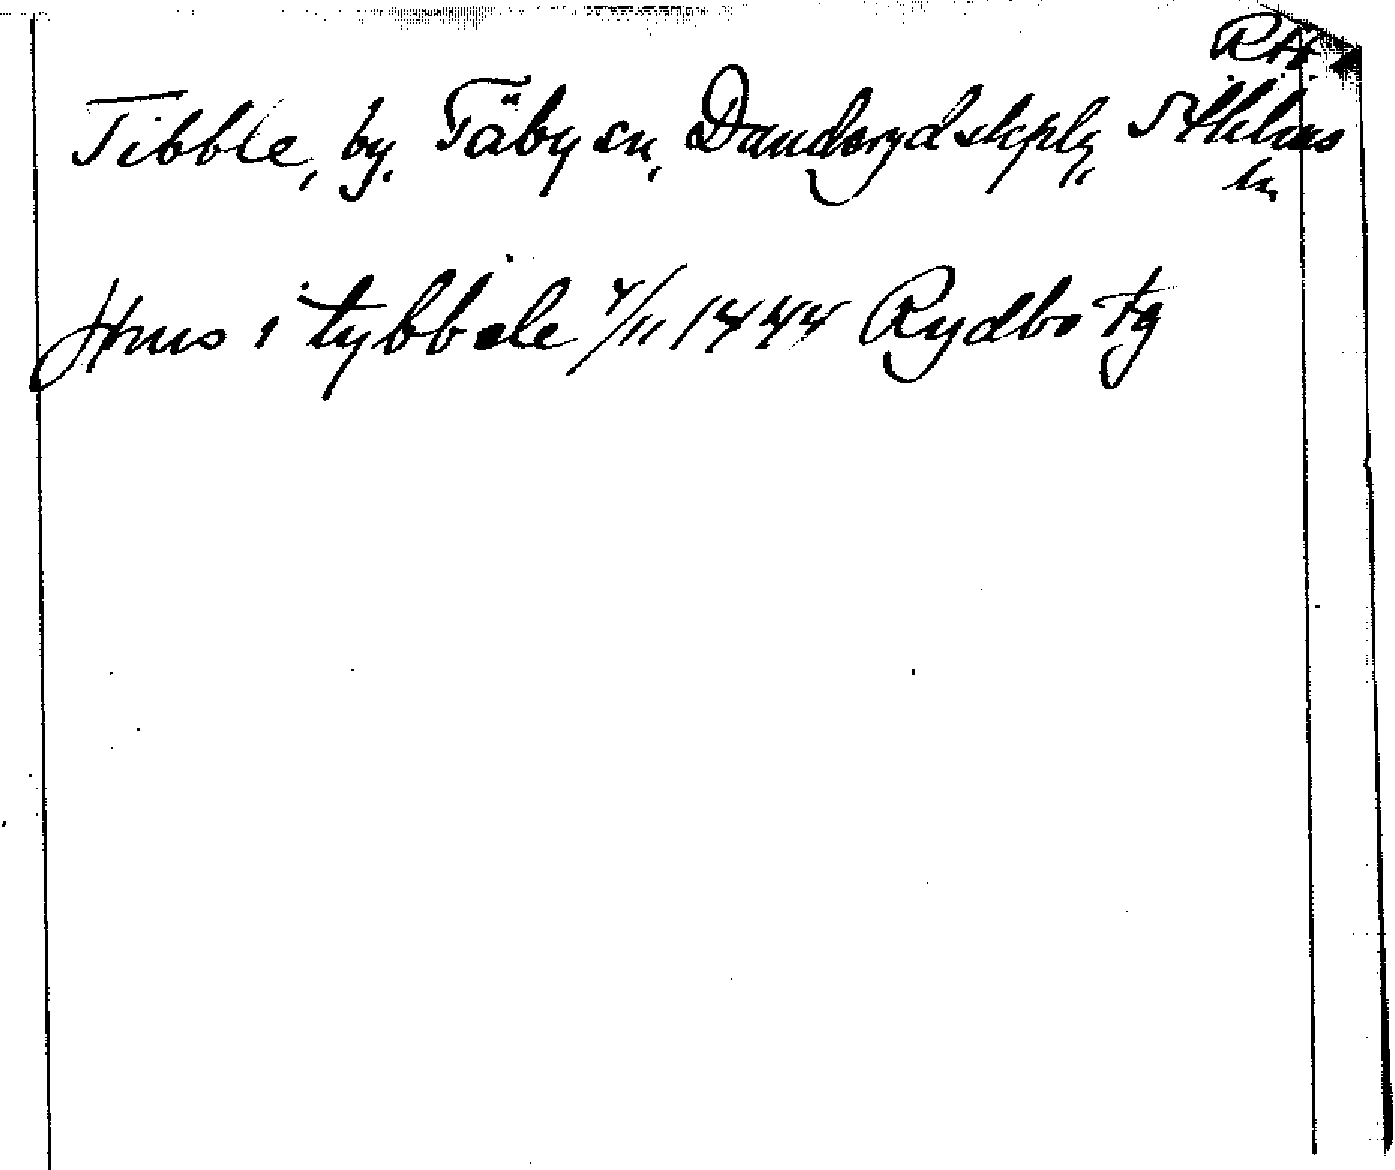 RA
Tibble, by, Täby sn, Danderyds skplg, Sthlms
ln,
Hans i tybbele 4/11 1444 Rydbo Tg